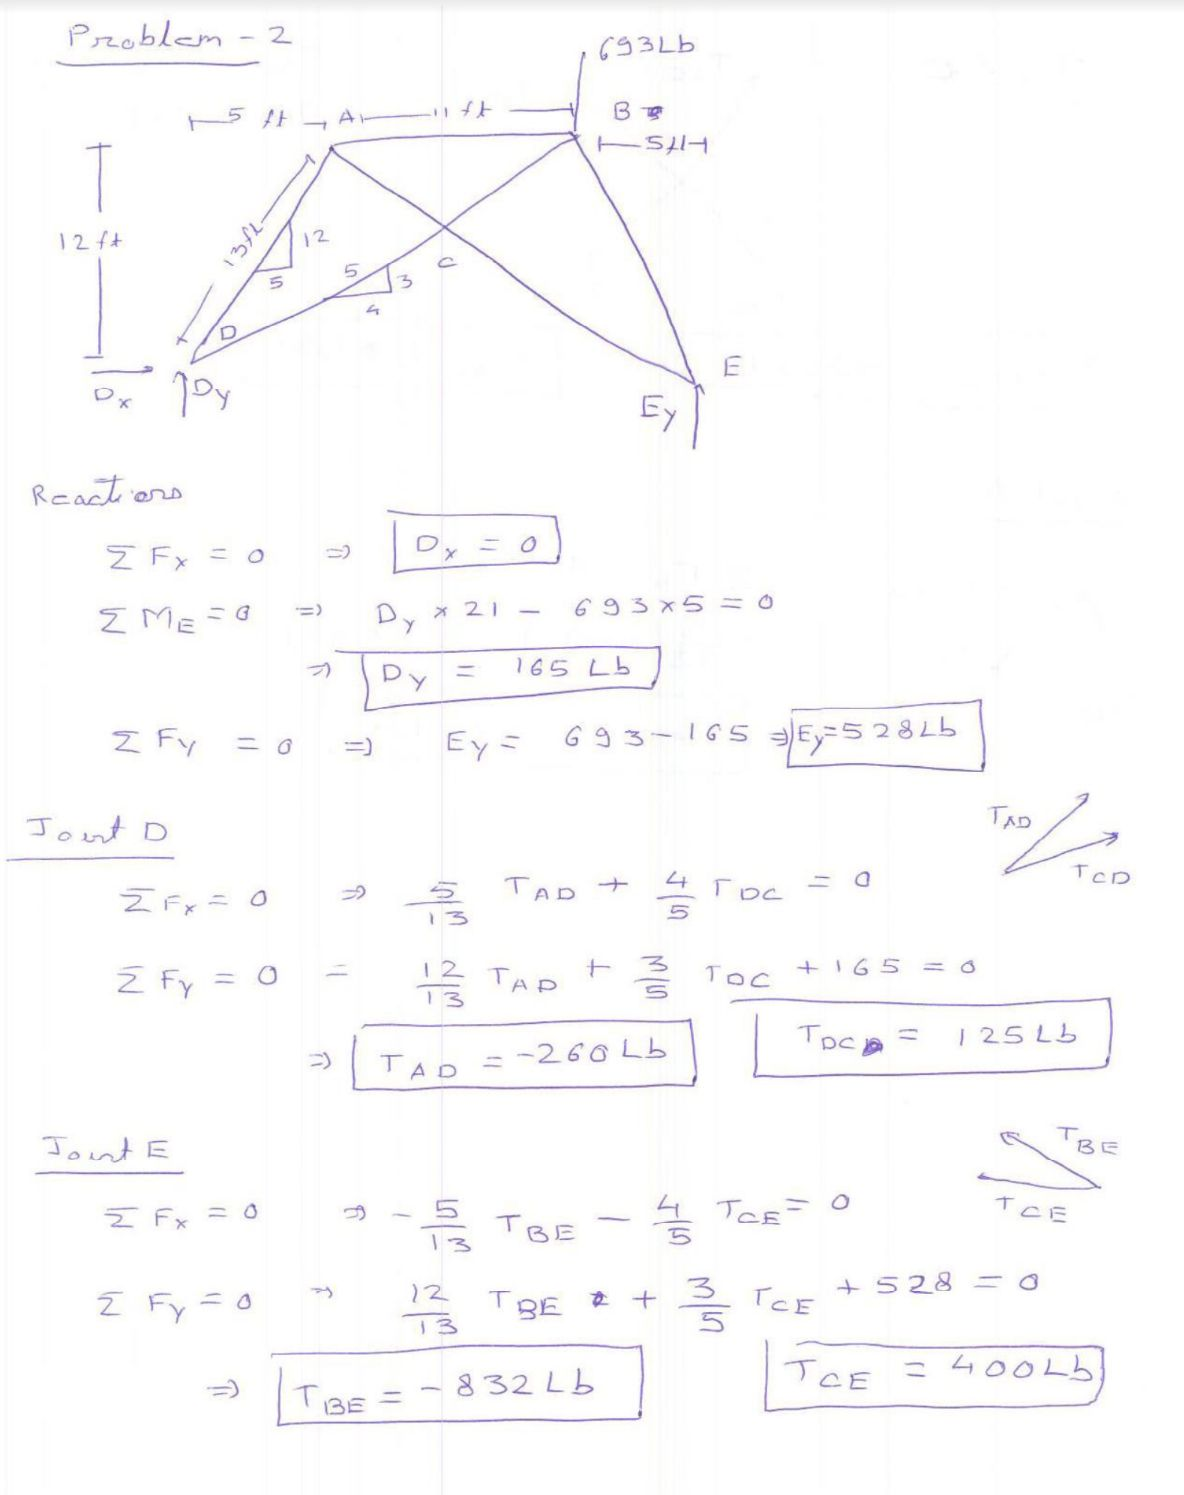 Problem - 2
693Lb
5 ft A 11 ft B
5ft
12 ft
13ft
12
5
5
3
4
C
D
E
Dx Dy
Ey
Reactions
Σ Fx = 0 ⇒ Dx = 0
Σ ME = 0 ⇒ Dy × 21 - 693×5 = 0
⇒ Dy = 165 Lb
Σ Fy = 0 ⇒ Ey = 693-165 ⇒ Ey=528Lb
Joint D
TAD
TCD
Σ Fx = 0 ⇒ 5/13 TAD + 4/5 TDC = 0
Σ Fy = 0 = 12/13 TAD + 3/5 TDC + 165 = 0
⇒ TAD = -260 Lb TDC = 125 Lb
Joint E
TBE
TCE
Σ Fx = 0 ⇒ - 5/13 TBE - 4/5 TCE = 0
Σ Fy = 0 ⇒ 12/13 TBE + 3/5 TCE + 528 = 0
⇒ TBE = - 832 Lb TCE = 400Lb